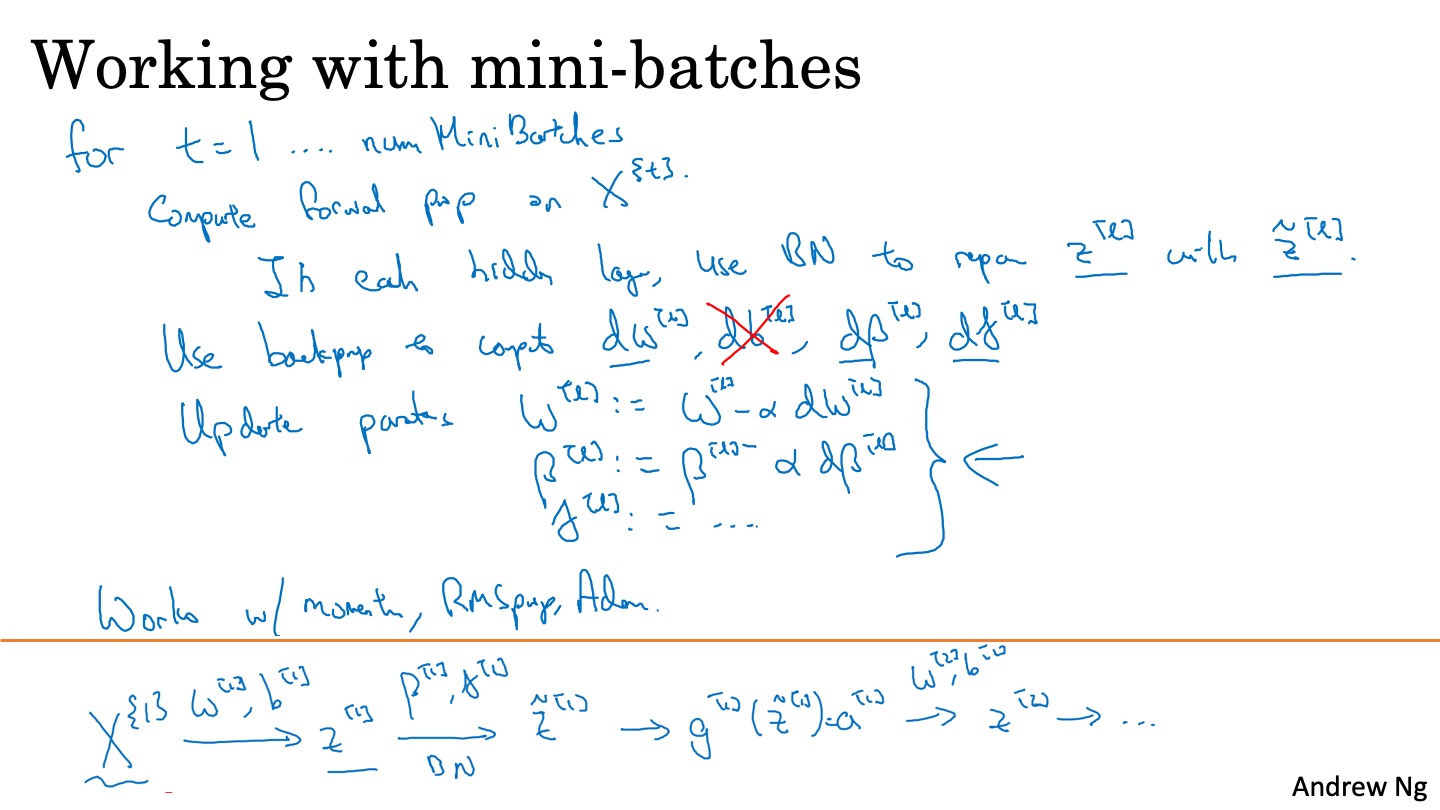 Working with mini-batches
for t = 1 .... num MiniBatches
Compute forwal prop on X^{t}.
In each hidden lay, use BN to repar z^[l] with z̃^[l].
Use backprop to compt dw^[l], db^[l], dβ^[l], dγ^[l]
Update parats w^[l] := w^[l] - α dw^[l]
β^[l] := β^[l] - α dβ^[l]
γ^[l] := ....
Works w/ momentm, RMSprop, Adam.
X^{1} w^[1], b^[1] → z^[1] β^[1], γ^[1] → BN z̃^[1] → g^[1](z̃^[1]) = a^[1] w^[2], b^[2] → z^[2] → ...
Andrew Ng